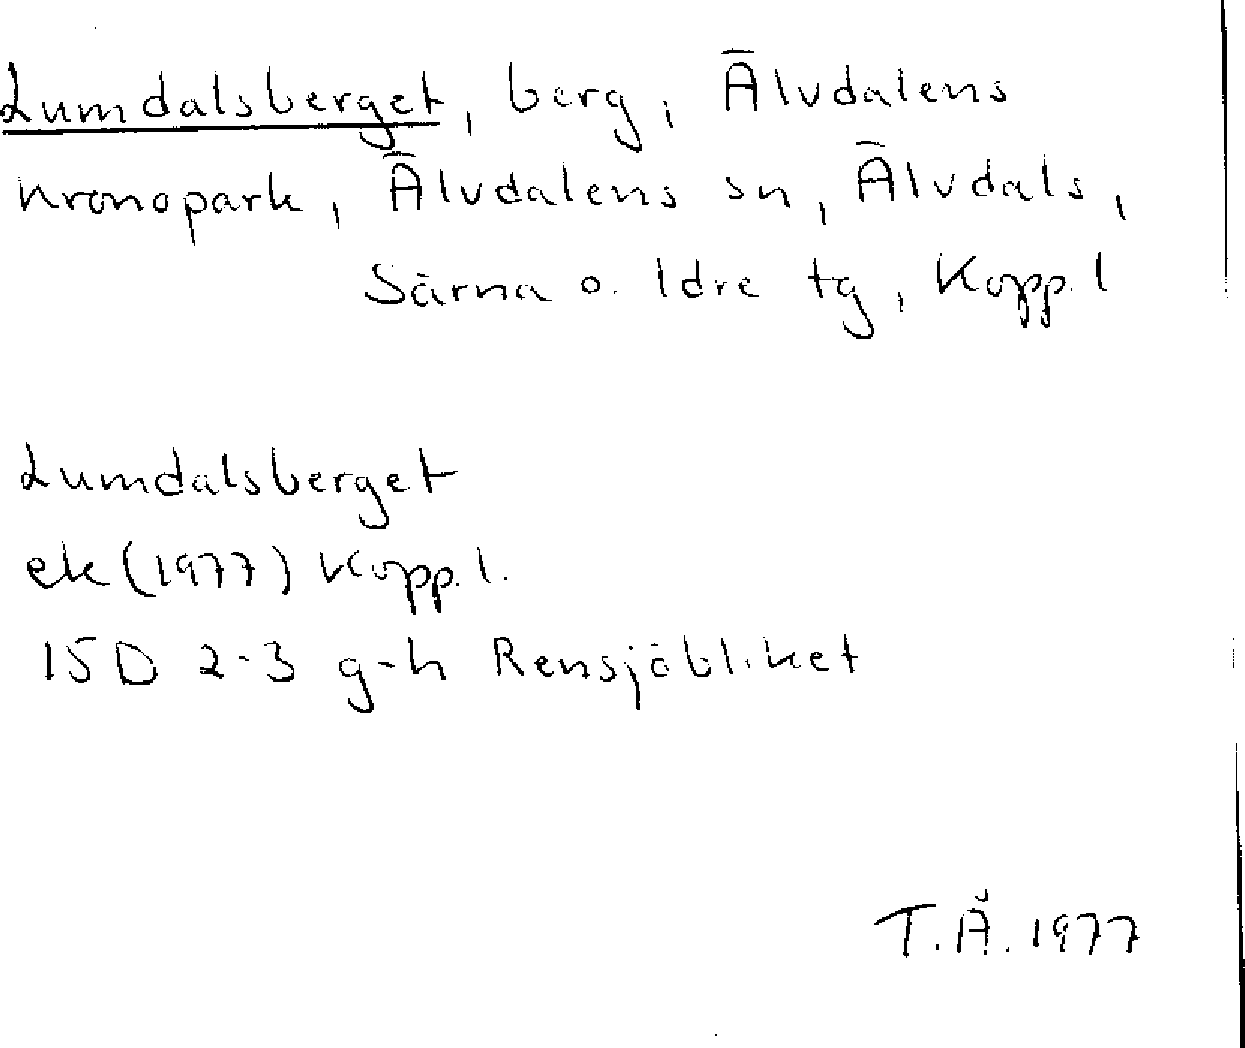 Lumdalsberget, berg, Älvdalens
kronopark, Älvdalens sn, Älvdals,
Särna o. Idre tg, Kopp. l
Lumdalsberget
ek (1977) Kopp. l.
15D 2-3 g-h Rensjöbliket
T.Å. 1977